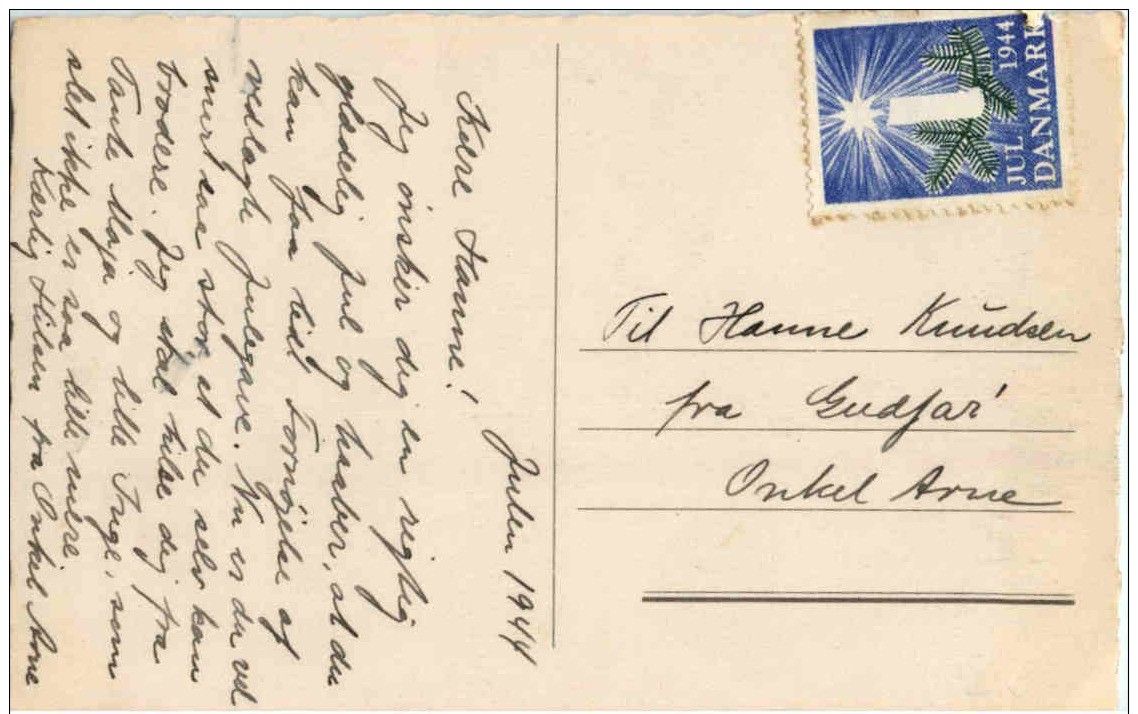 Julen 1944
Kære Hanne!
Jeg ønsker dig en rigtig
glædelig Jul og haaber, at du
kan faa lidt Fornøjelse af
vedlagte Julegave. Nu er du vel
snart saa stor, at du selv kan
brodere. Jeg skal hilse dig fra
Tante Maja og lille Inge, som
slet ikke er saa lille mere.
Kærlig Hilsen fra Onkel Arne
JUL 1944
DANMARK
Til Hanne Knudsen
fra Gudfar
Onkel Arne